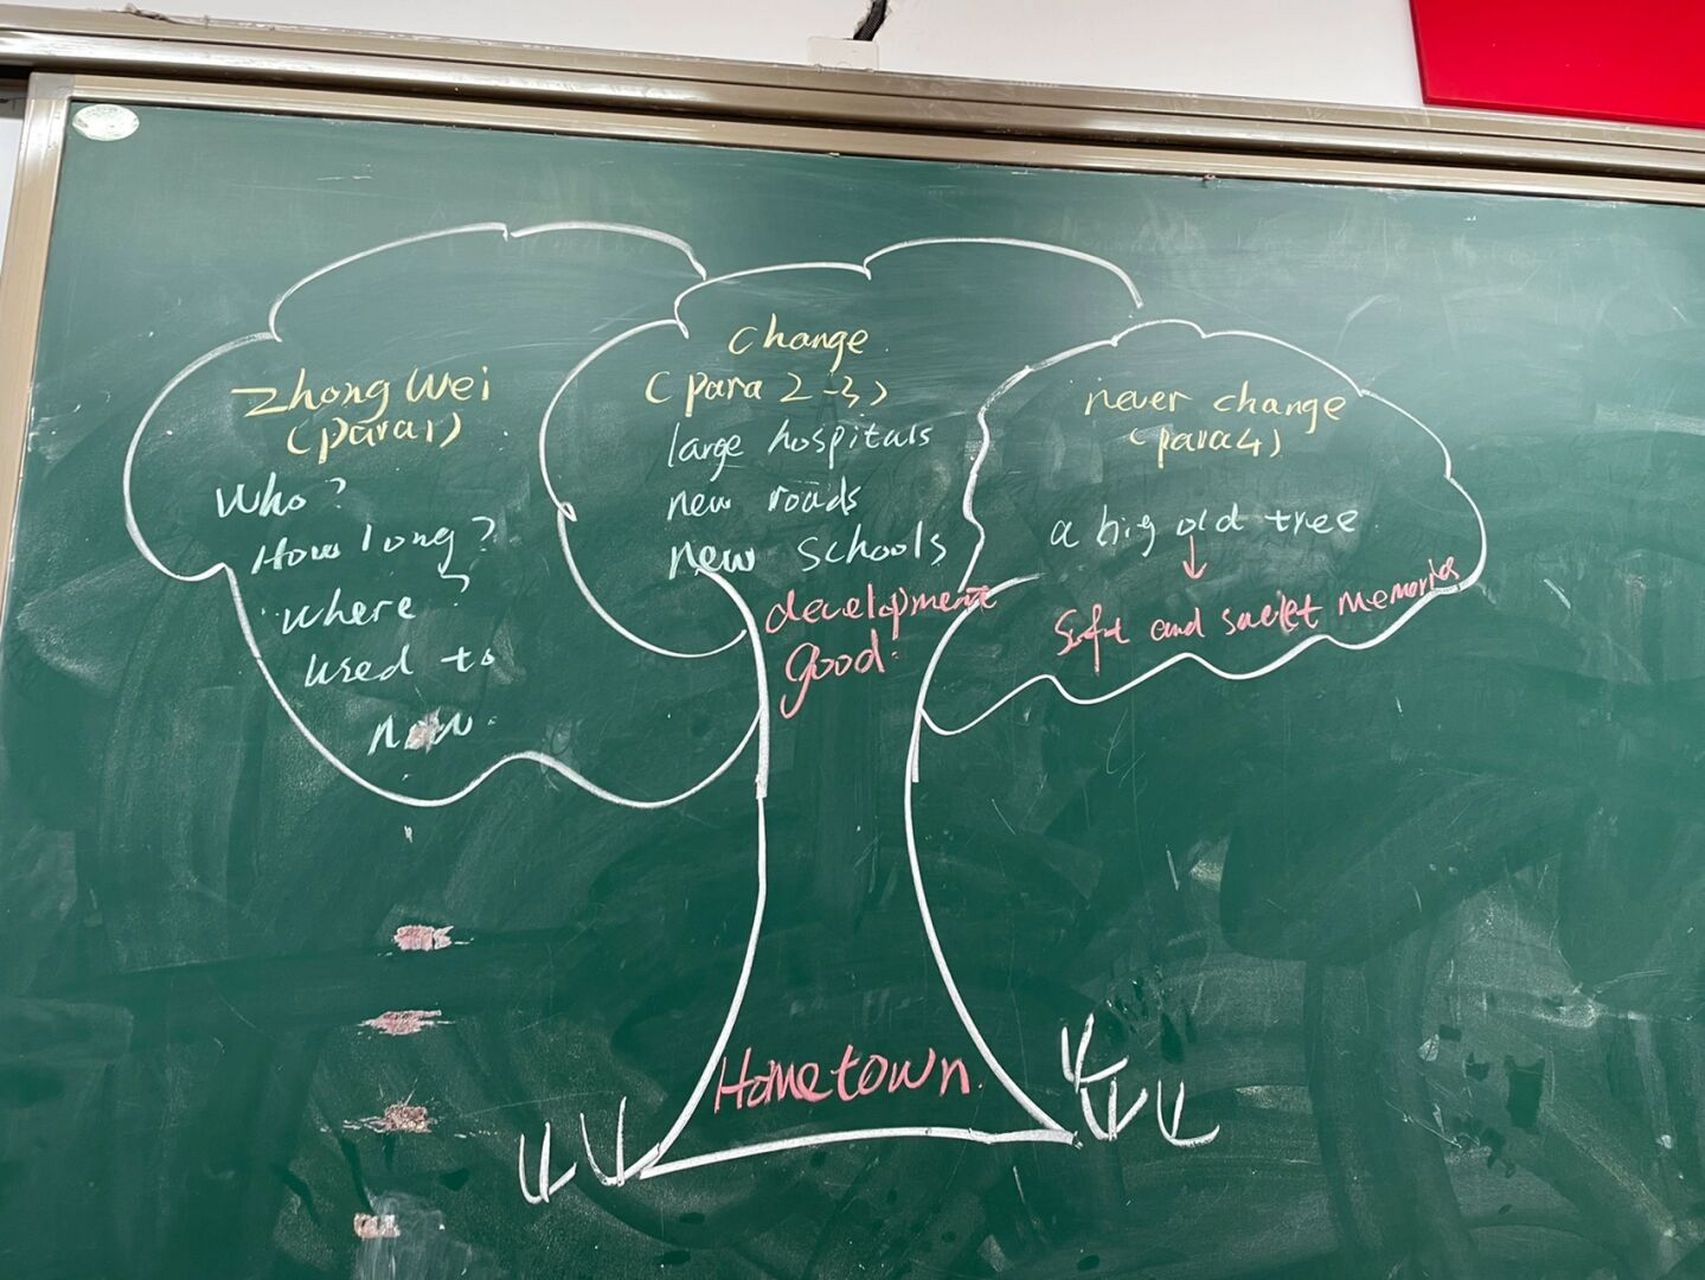 Zhong Wei
(para1)
Who?
How long?
where?
used to
now.
change
(para 2-3)
large hospitals
new roads
new schools
development
good.
never change
(para4)
a big old tree
and memories
Hometown